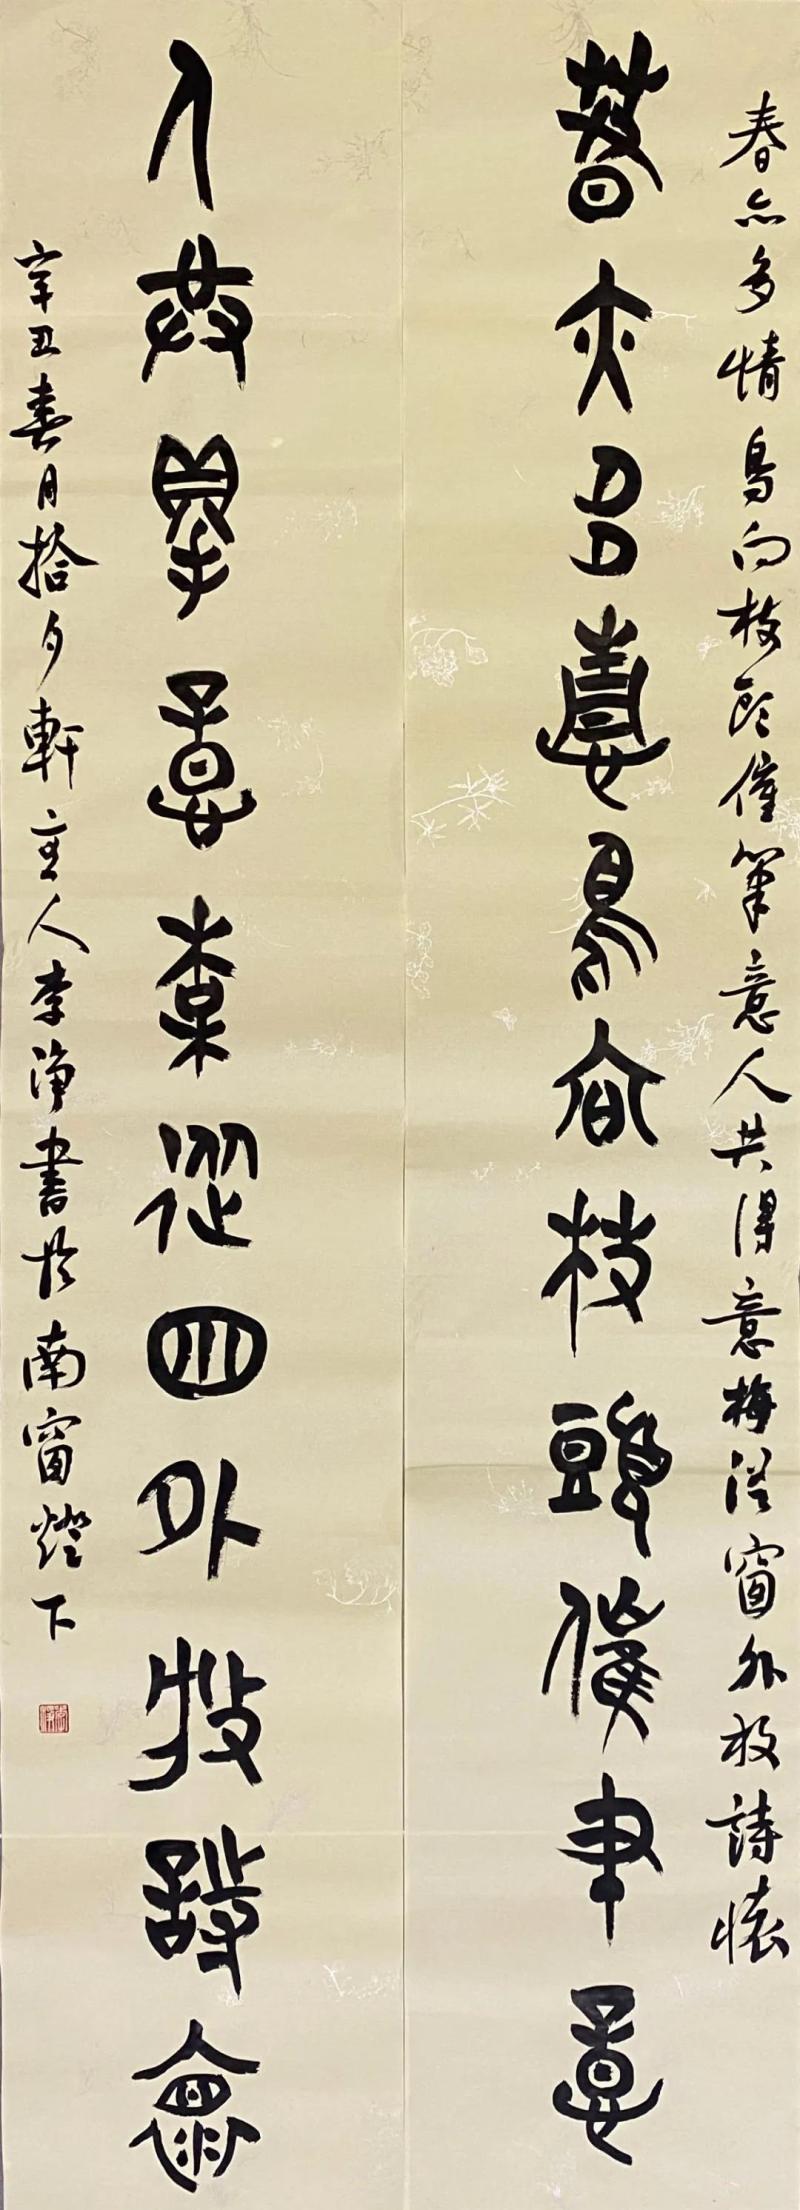 春亦多情鳥向枝頭催筆意人共得意梅從窗外放詩懷
春亦多情鳥向枝頭催聿意
人共得意某從囱外放詩懷
辛丑春月拾夕軒主人李淨書於南窗燈下